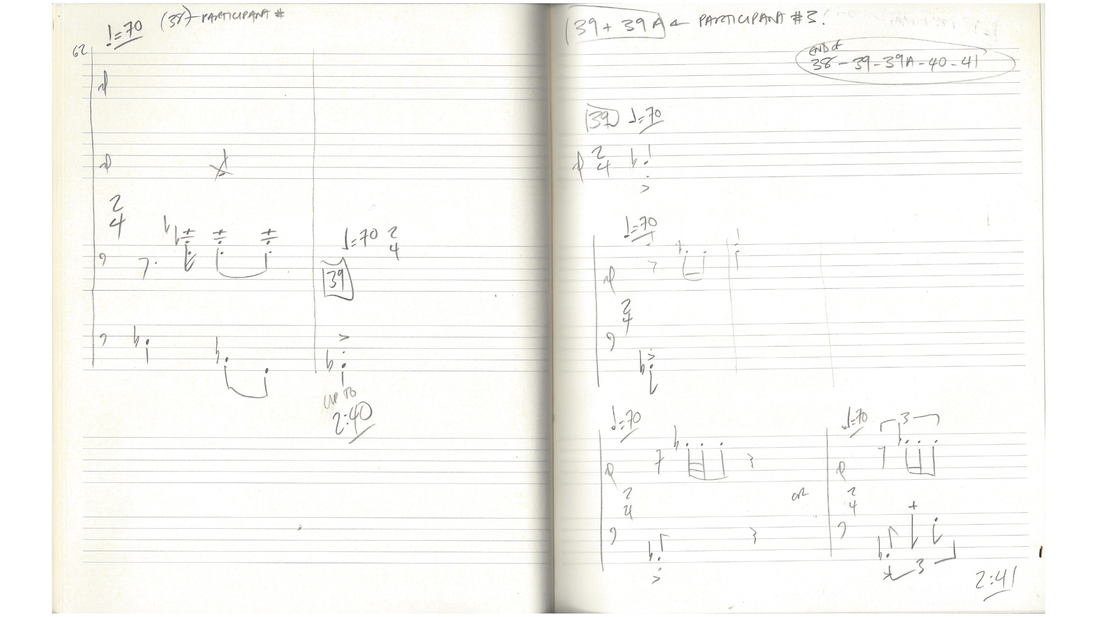 62
♩=70 (38) - PARTICIPANT #
2
4
♩=70 2
4
39
UP TO
2:40
(39 + 39A) ← PARTICIPANT #3.
END of
38-39-39A-40-41
(39) ♩=70
2
4
♩=70
2
4
♩=70
2
4
OR
♩=70 3
2
4
3
2:41